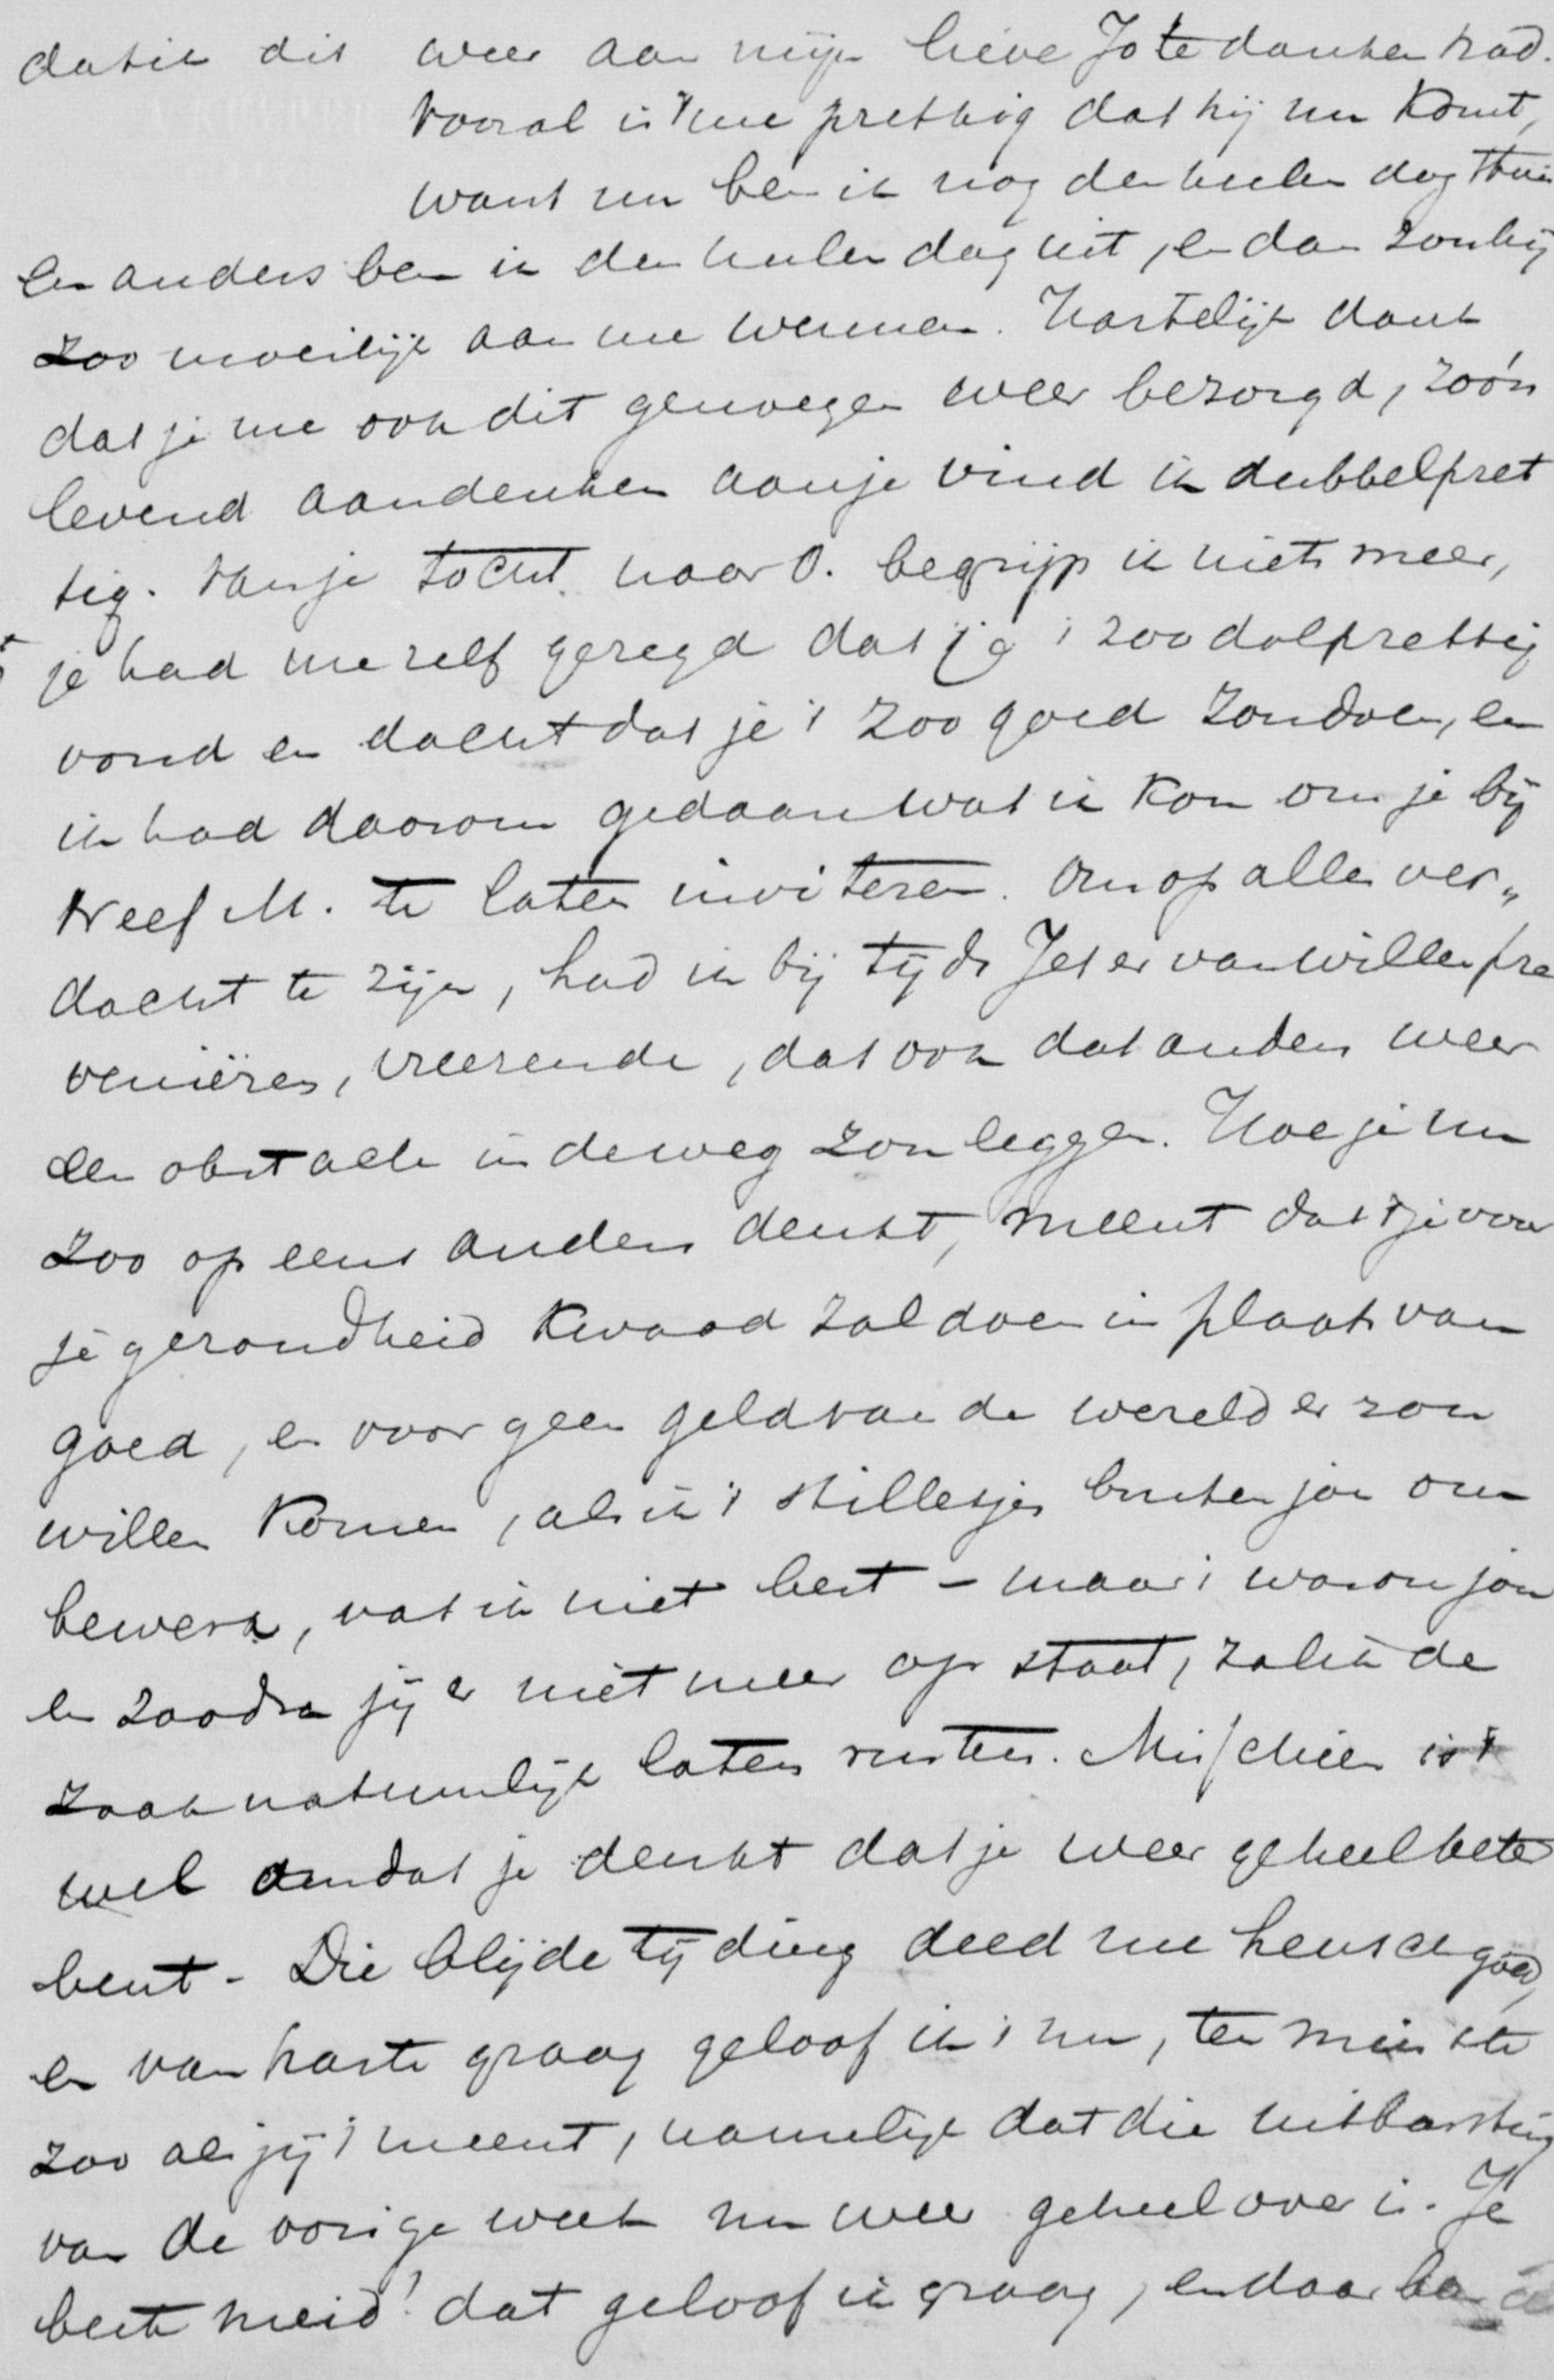 dat ik dit weer aan mijn lieve Jo te danken had.
Vooral is 't me prettig dat hij nu komt,
want nu ben ik nog den heelen dag thuis
en anders ben ik den heelen dag uit, en dan zou hij
zoo moeilijk aan me wennen. Hartelijk dank
dat je me ook dit genoegen weer bezorgd, zóó'n
levend aandenken aan je vind ik dubbel pret
tig. Van je tocht naar O. begrijp ik niets meer,
je had me zelf gezegd dat je 't zoo dolprettig
vond en dacht dat je 't zoo goed zou doen, en
ik had daarom gedaan wat ik kon om je bij
Neef M. te laten inviteren. Om op alles ver„
dacht te zijn, had ik bij tijds Jet er van willen pre
veniëren, vreezende, dat ook dat anders weer
een obstacle in de weg zou leggen. Hoe je nu
zoo op eens anders denkt, meent dat 't je voor
je gezondheid kwaad zal doen in plaats van
goed, en voor geen geld van de wereld er zou
willen komen, als ik 't stilletjes buiten jou om
bewerk, vat ik niet best – maar 't was om jou
en zoodra jij er niet meer op staat, zal ik de
zaak natuurlijk laten rusten. Misschien is 't
wel omdat je denkt dat je weer geheel beter
bent – Die blijde tijding deed me heusch goed,
en van harte graag geloof ik 't nu, ten minste
zoo als jij 't meent, namelijk dat die uitbarsting
van de vorige week nu weer geheel over is. Je
beste meid! dat geloof ik graag, en daar ben ik